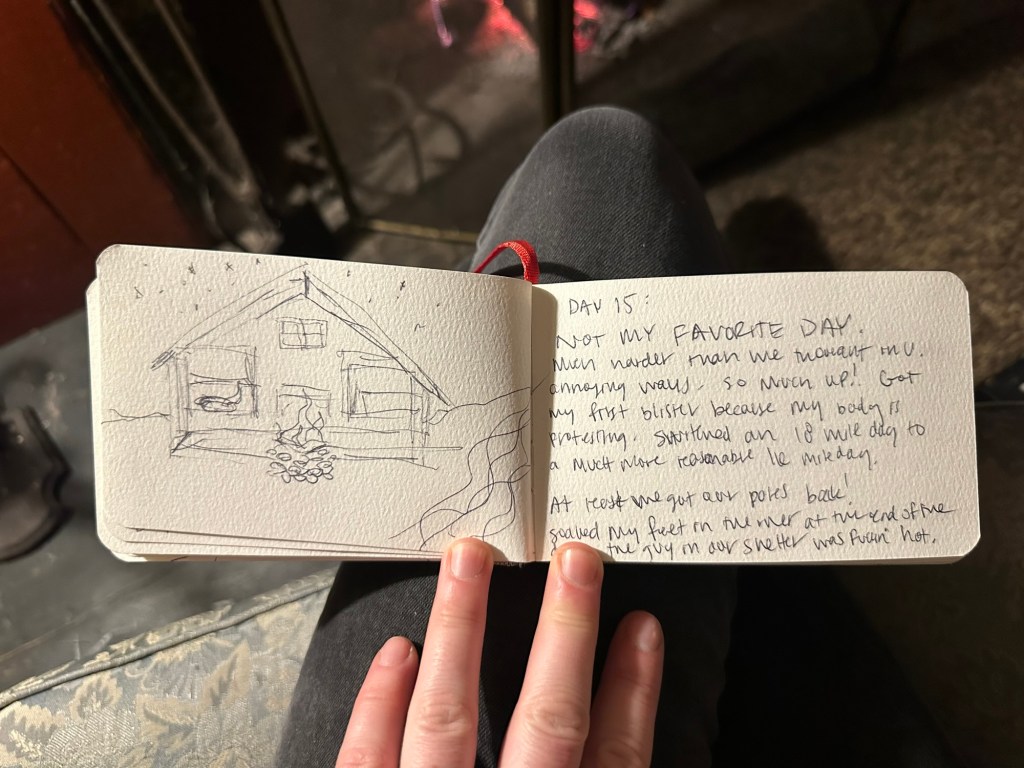 DAY 15:
NOT MY FAVORITE DAY.
Much harder than we thought in v.
annoying ways. So much up! Got
my first blister because my body is
protesting. Switched an 18 mile day to
a much more reasonable 16 mile day.
At least we got our poles back!
soaked my feet in the river at the end of the
the guy in our shelter was fuckin' hot.